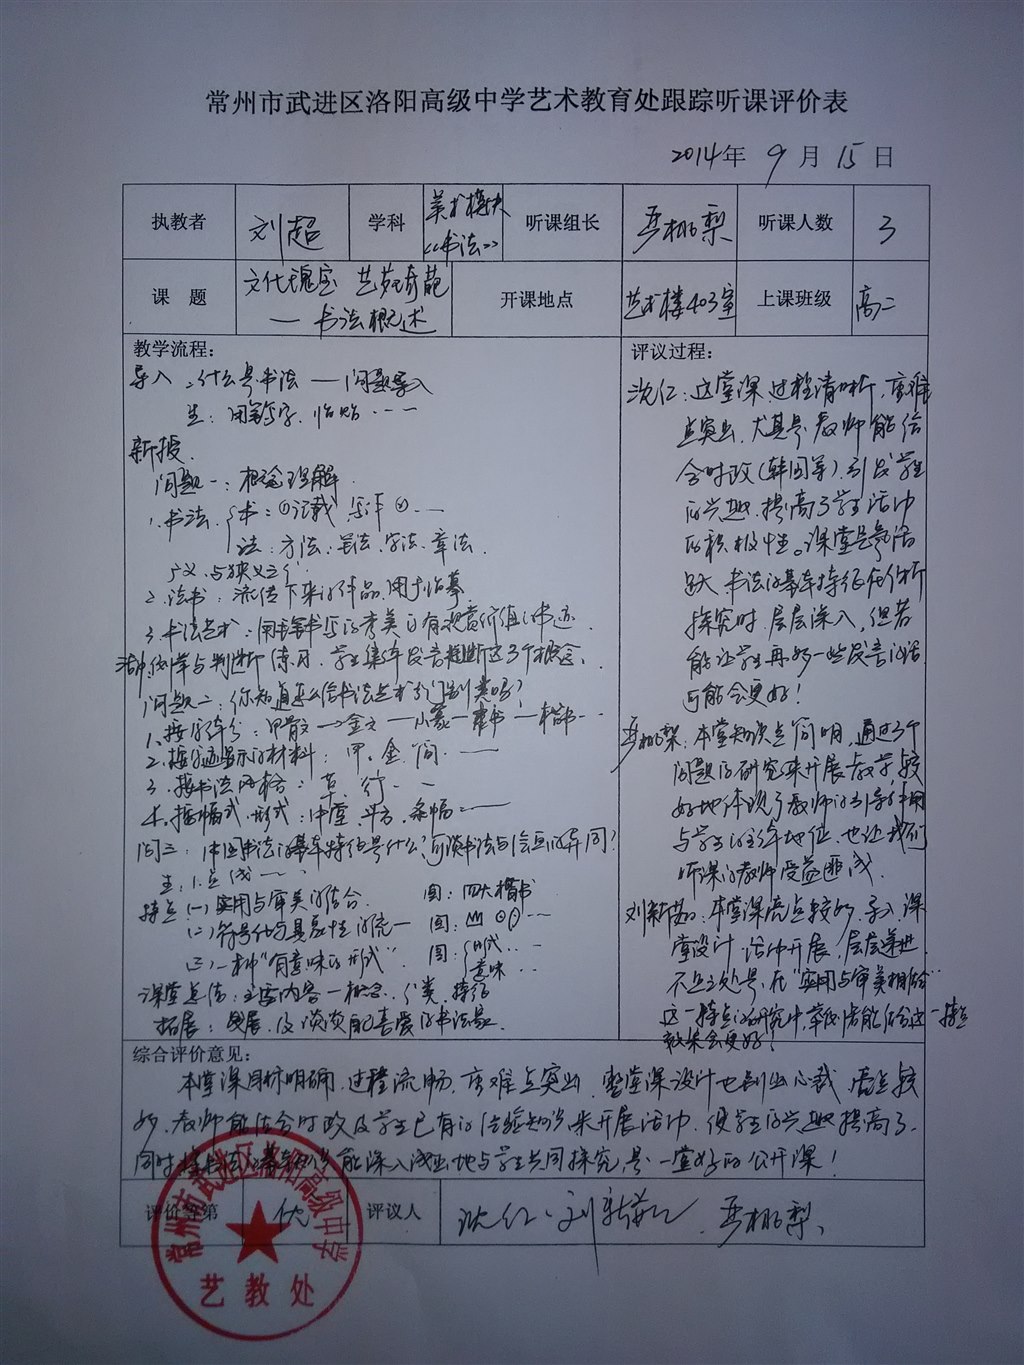 常州市武进区洛阳高级中学艺术教育处跟踪听课评价表
2014年 9 月 15 日
执教者 刘超 学科 美术模块《书法》 听课组长 桃梨 听课人数 3
课 题 文化瑰宝 艺苑奇葩 开课地点 艺术楼403室 上课班级 高二
— 书法概述
教学流程：
导入：什么是书法 — 问题导入
生：用毛笔写字、临帖……
新授
问题一：概念理解
1.书法 书：①记载 写作 ②…
法：方法：笔法、字法、章法
广义与狭义之分
2.法书：流传下来的作品，用于临摹
3.书法艺术：用毛笔书写的秀美的有观赏价值的书迹
练习，学生集体发言判断这3个概念
问题二：你知道怎么给书法艺术分门别类吗？
1.按字体分：甲骨文—金文—小篆—隶书—楷书…
2.按显示的材料：甲、金、简、…
3.按书法风格：草、行、…
4.按幅式形式：中堂、斗方、条幅…
问三：中国书法的基本特征是什么？可谈书法与绘画的异同？
生：1.点线…
特点(一)实用与审美的结合 图：四大楷书
(二)符号化与具象性的统一 图：山
(三)一种“有意味的形式” 图：形式…
意味…
课堂总结：主要内容—概念、分类、特征
拓展：发展，及谈谈自己喜爱的书法家
评议过程：
沈仁：这堂课过程清晰，重难
点突出，尤其是教师能结
合时政(韩国等)引发学生
的兴趣，提高了学生活动
的积极性。课堂气氛活
跃，书法的基本特征在分析
探究时，层层深入，但若
能让学生再多一些发言的话
可能会更好！
桃梨：本堂知识点简明，通过3个
问题的研究来开展教学，较
好地体现了教师的引导作用
与学生的主体地位，也让我们
听课的教师受益匪浅。
刘新：本堂课亮点较多，导入、课
堂设计、活动开展，层层递进，
不足之处是，在“实用与审美相结合”
这一特点的研究中，若能结合这一特点
效果会更好！
综合评价意见：
本堂课目标明确，过程流畅，重难点突出，整堂课设计也别出心裁，亮点较
多，教师能结合时政及学生已有的经验知识来开展活动，使学生的兴趣提高了，
同时将书法的基本知识能深入浅出地与学生共同探究，是一堂好的公开课！
评价等第 优 评议人 沈仁、刘新、桃梨
常州市武进区洛阳高级中学
艺教处